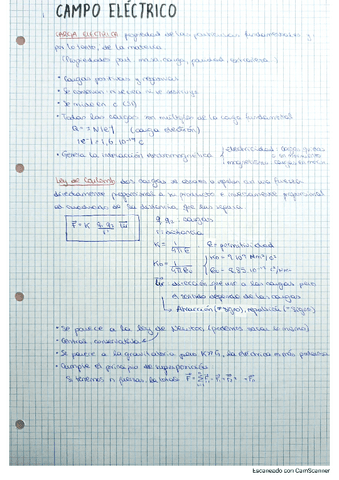 CAMPO ELÉCTRICO
CARGA ELÉCTRICA propiedad de las partículas fundamentales y
por lo tanto, de la materia.
(Propiedades part: masa, carga,
• Cargas positivas y negativas
• Se conserva ni se crea ni se destruye
• Se mide en C (SI)
• Todas las cargas son múltiplos de la carga fundamental
Q = ± N|e| (carga electrón)
|e⁻| = 1,6 · 10⁻¹⁹ C
• Genera la interacción electromagnética
electricidad: carga
magnetismo: carga
Ley de Coulomb: dos cargas se atraen o repelen con una fuerza
directamente proporcional a su producto e inversamente proporcional
al cuadrado de la distancia que las separa
F = K q₁q₂/r² u
q₁ q₂: cargas
r: distancia
K = 1/4πε ε = permitividad
K₀ = 1/4πε₀ K₀ = 9·10⁹ Nm²/C²
ε₀ = 8,85·10⁻¹² C²/Nm²
u: dirección que une a las cargas pero
el sentido depende de las cargas
Atracción (≠ signo), repulsión (= signo)
• Se parece a la ley de Newton, (podemos sacar lo mismo)
• Central, conservativa
• Se parece a la gravitatoria pero K≫G, la eléctrica es más poderosa
• Cumple el principio de superposición
Si tenemos n fuerzas, la total
Escaneado con CamScanner